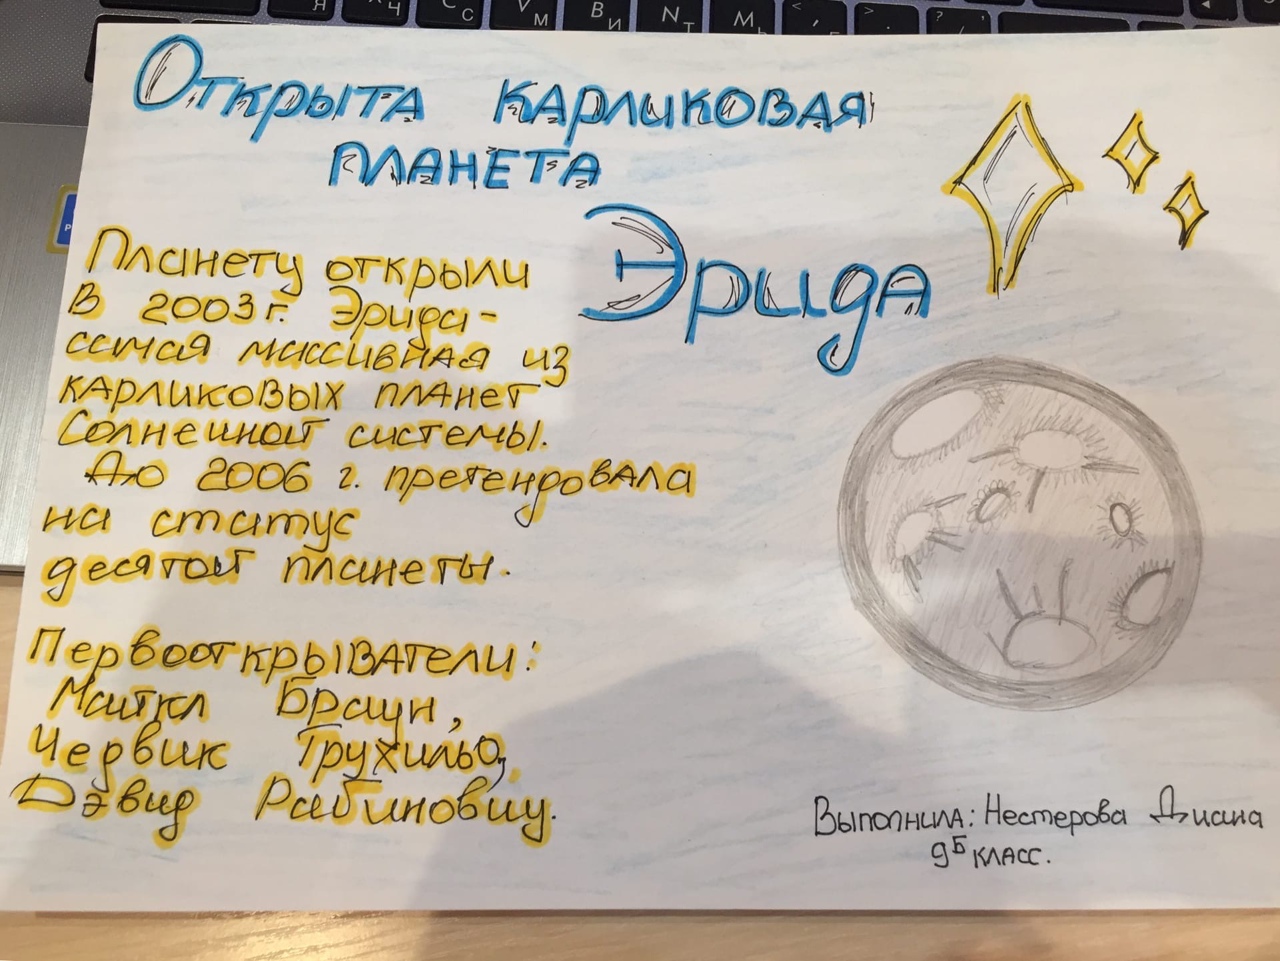 Открыта карликовая
планета
Эрида
Планету открыли
в 2003 г. Эрида-
самая массивная из
карликовых планет
Солнечной системы.
До 2006 г. претендовала
на статус
десятой планеты.
Первооткрыватели:
Майкл Браун,
Червик Трухильо,
Дэвид Рабиновиц.
Выполнила: Нестерова Диана
9Б класс.